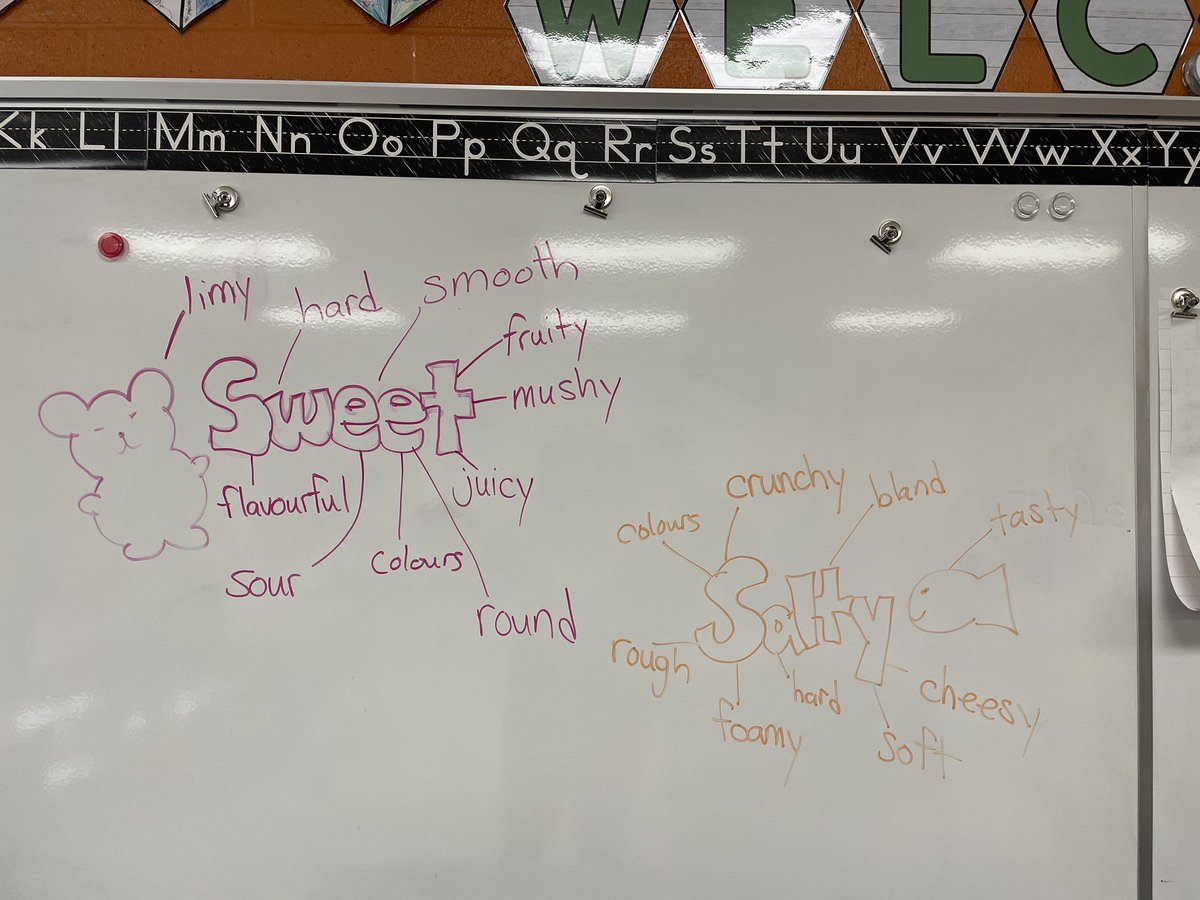 W E L C
Kk Ll Mm Nn Oo Pp Qq Rr Ss Tt Uu Vv Ww Xx Yy
limy
hard
smooth
fruity
Sweet
mushy
flavourful
juicy
sour
colours
round
crunchy
bland
colours
tasty
Salty
rough
hard
cheesy
foamy
soft